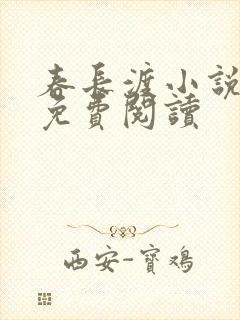 春长渡小説
免費閱讀
西安-寶鴻